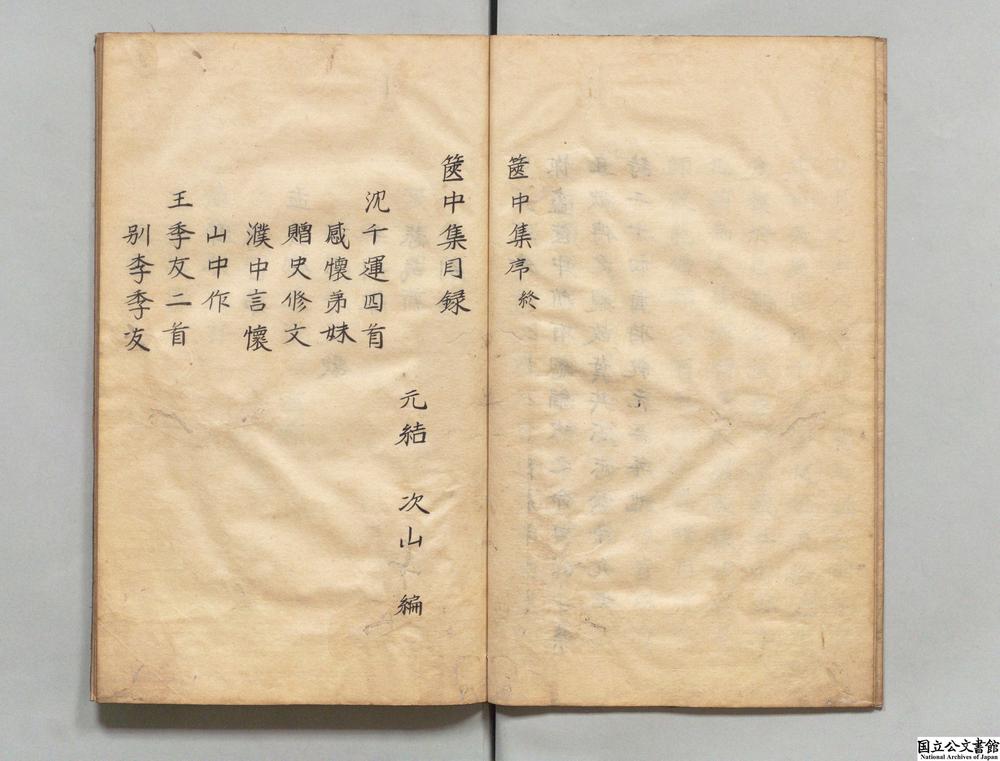 篋中集序終
篋中集目録
元結 次山 編
沈千運四首
感懷弟妹
贈史修文
濮中言懷
山中作
王季友二首
别李季友
国立公文書館
National Archives of Japan